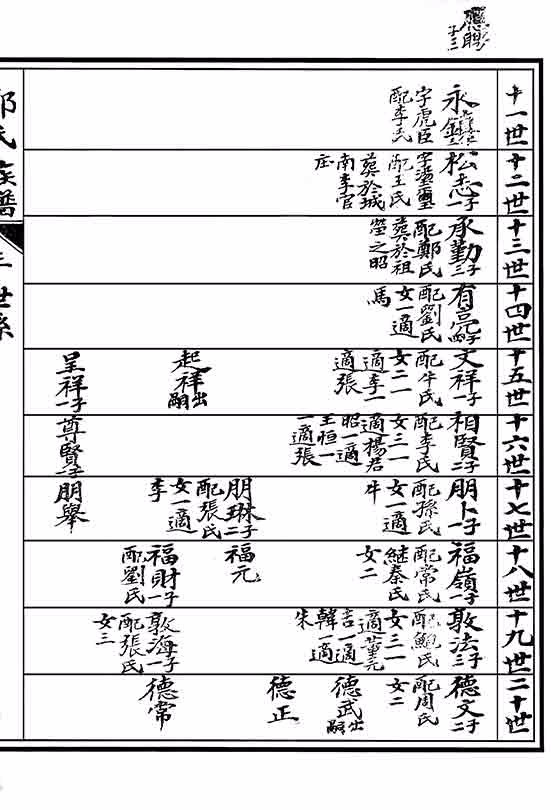 應聘
子三
十一世
永鎮
字虎臣
配李氏
十二世
松志一子
字漢璽
配王氏
葬於城
南李官
庄
十三世
承勤三子
配鄭氏
葬於祖
塋之昭
十四世
有亮嗣子
配劉氏
女一適
馬
十五世
文祥一子
配牛氏
女二一
適李一
適張
起祥出嗣
呈祥一子
十六世
相賢二子
配李氏
女三一
適楊君
昭一適
王恒一
一適張
尊賢一子
十七世
朋卜一子
配孫氏
女一適
牛
朋琳二子
配張氏
女一適
李
朋舉
十八世
福嶺一子
配常氏
繼秦氏
女二
福元
福財一子
配劉氏
十九世
敦法三子
配鮑氏
女三一
適董元
吉一適
韓一適
朱
敦海一子
配張氏
女三
二十世
德文二子
配周氏
女二
德武出嗣
德正
德常
氏族譜
世系